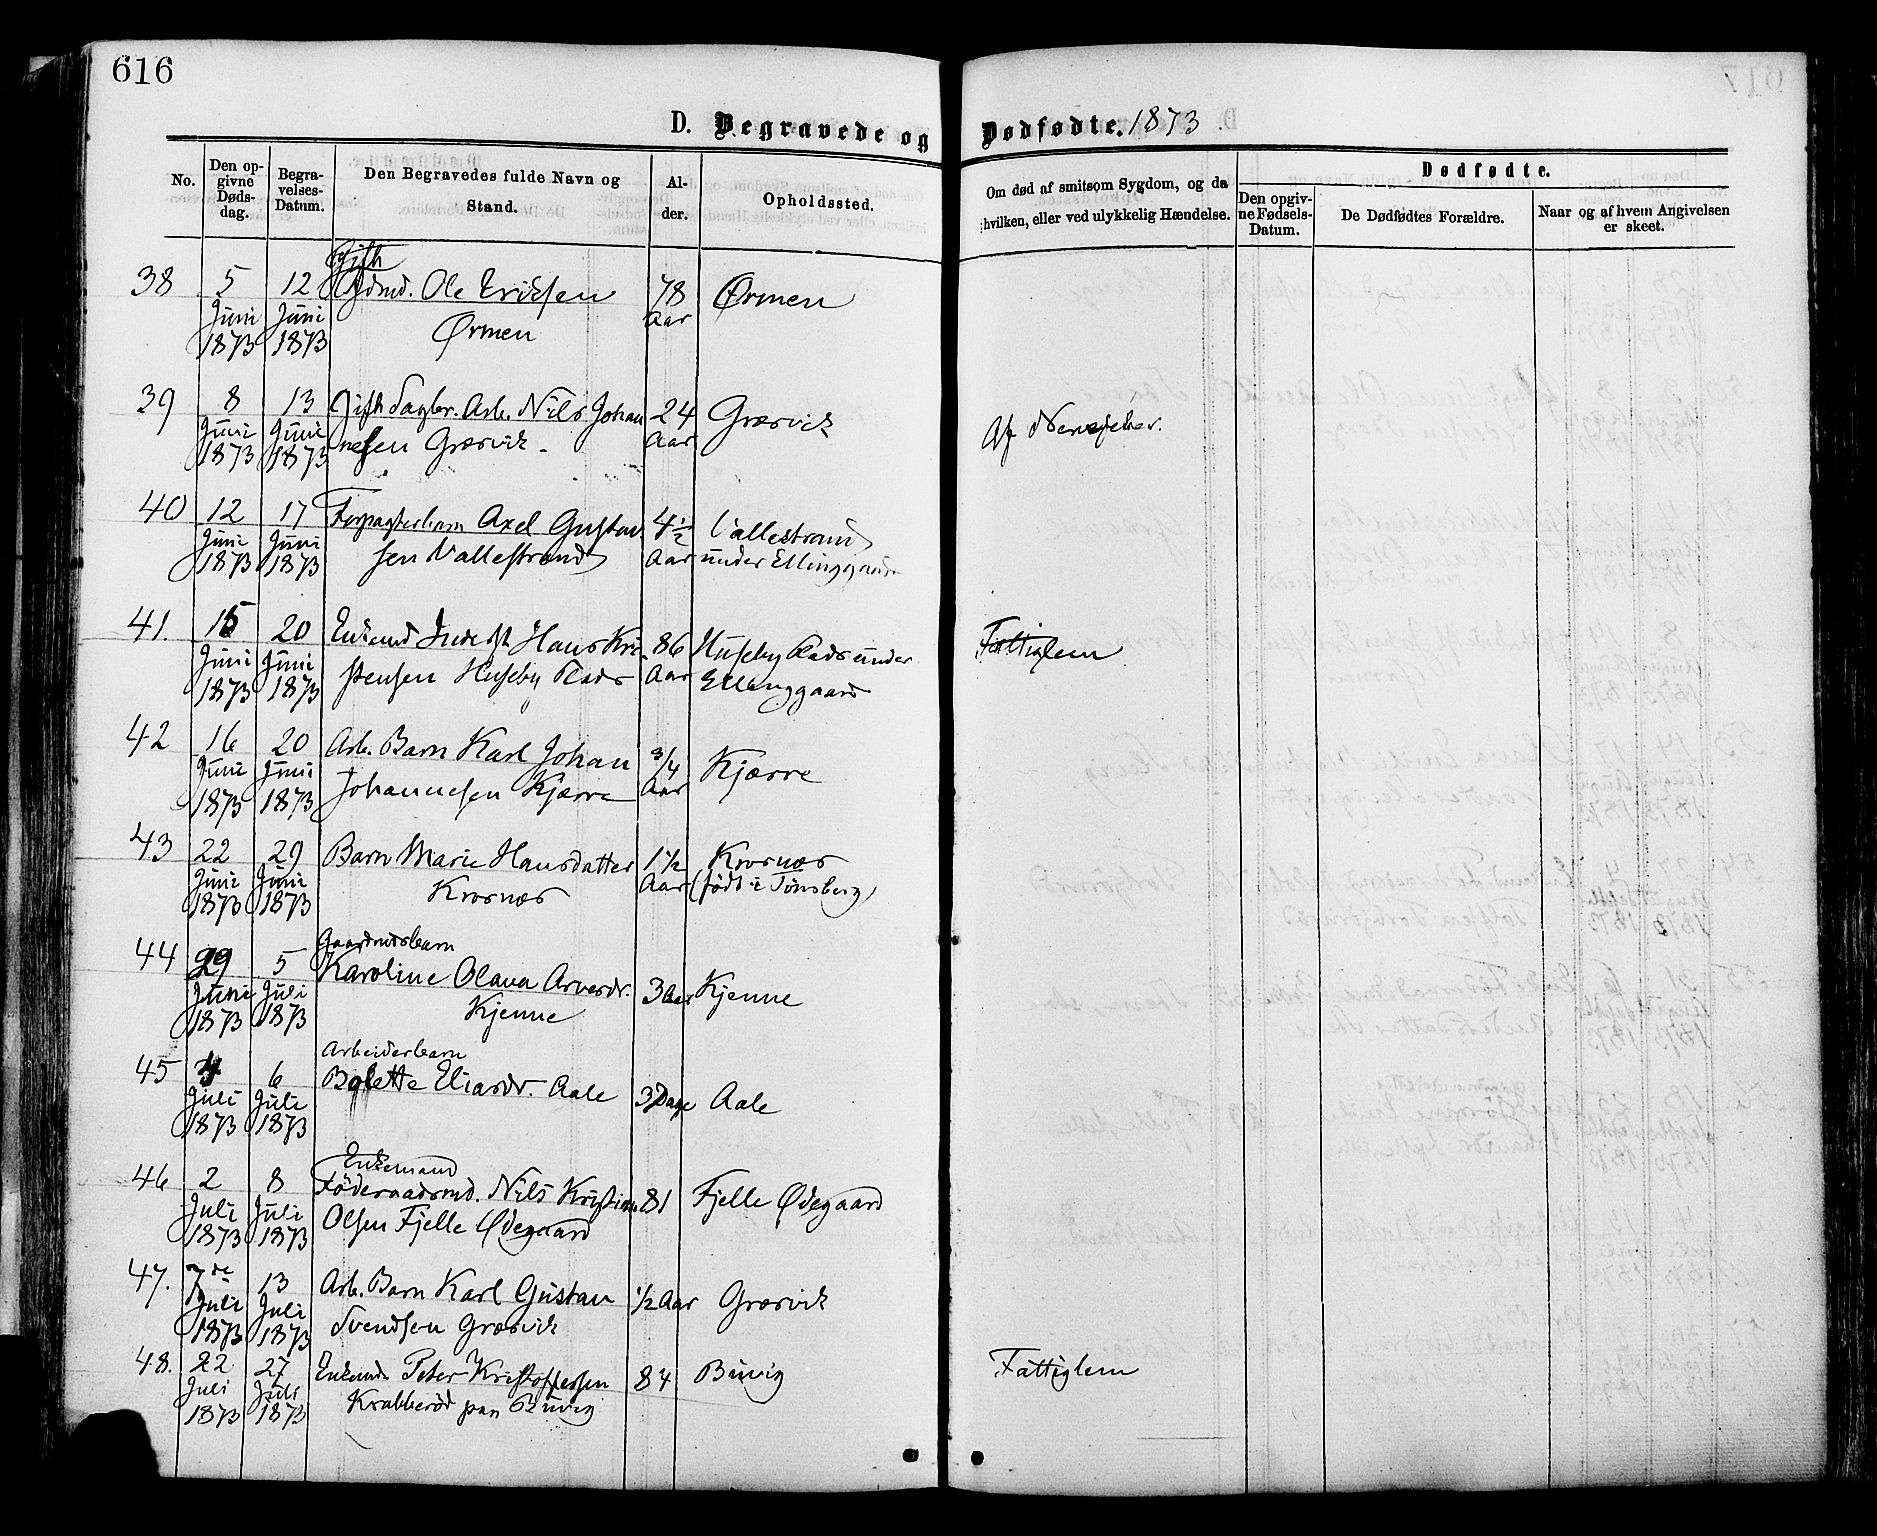 616
D. Begravede og Dødfødte. 1873
No.
Den opgivne Dødsdag.
Begravelses-Datum.
Den Begravedes fulde Navn og Stand.
Alder.
Opholdssted.
Om død af smitsom Sygdom, og da hvilken, eller ved ulykkelig Hændelse.
Dødfødte.
Den opgivne Fødsels-Datum.
De Dødfødtes Forældre.
Naar og af hvem Angivelsen er skeet.
38 5 Juni 1873 12 Juni 1873
Gift
Gdmd. Ole Eriksen
Ørmen
78 Aar
Ørmen
39 8 Juni 1873 13 Juni 1873
Gift Sagbr. Arb. Nils Johan
nesen Græsvik.
24 Aar
Græsvik
Af Nervefeber.
40 12 Juni 1873 17 Juni 1873
Forpagterbarn Axel Gustav
sen Vallestrand
4½ Aar
Vallestrand
under Ellinggaard
41. 15 Juni 1873 20 Juni 1873
Enkemd Inderst Hans Kri
stensen Huseby Plads
86 Aar
Huseby Plads under
Ellinggaard
Fattiglem
42 16 Juni 1873 20 Juni 1873
Arb. Barn Karl Johan
Johannesen Kjærre
3/4 Aar
Kjærre
43 22 Juni 1873 29 Juni 1873
Barn Marie Hansdatter
Krosnæs
1½ Aar
Krosnæs
(født i Tønsberg)
44 29 Juni 1873 5 Juli 1873
Gaardmdsbarn
Karoline Olava Arvesdr.
Kjenne
3 Aar
Kjenne
45 4 Juli 1873 6 Juli 1873
Arbeiderbarn
Bolette Eliasdr. Aale
3 Dage
Aale
46 2 Juli 1873 8 Juli 1873
Enkemand
Føderaadsmd. Nils Kristian
Olsen Fjelle Ødegaard
81
Fjelle Ødegaard
47. 7de Juli 1873 13 Juli 1873
Arb. Barn Karl Gustav
Svendsen Græsvik
½ Aar
Græsvik
48. 22 Juli 1873 27 Juli 1873
Enkemd. Peter Kristoffersen
Krabberød paa Buvig
84
Buvig
Fattiglem